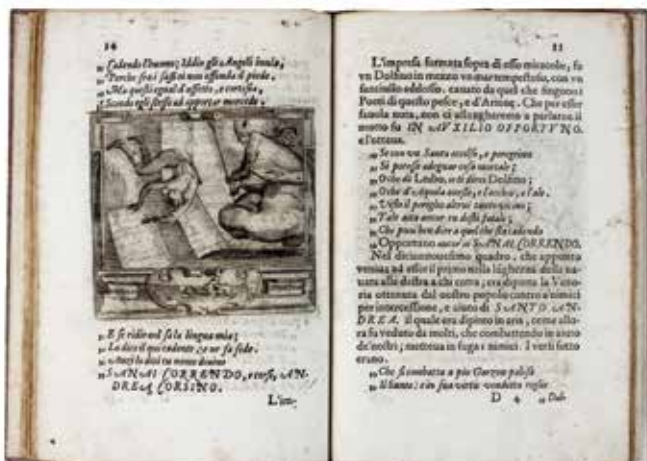 Cadendo l'huomo; Iddio gli Angeli inuia,
Perche fra i sassi ei non offenda il piede.
Ma questi egual d'affetto, e cortesia,
Scende egli stesso ad apportar mercede.
E se ridir nol sa la lingua mia;
Lo dica il qui cadente, e ne fa fede.
Anzi lo dica tu nome diuino
SANAI CORRENDO, e corsi, AN-
DREA CORSINO.
L'im-
55
L'impresa formata sopra di esso miracolo, fu
vn Dolfino in mezzo vn mar tempestoso, con vn
fanciullo addosso, cauato da quel che fingono i
Poeti di questo pesce, e d'Arione. Che per esser
fauola nota, non ci allungheremo a parlarne. il
motto fu IN AVXILIO OPPORTVNO.
e l'ottaua.
Se con vn Santo eccelso, e peregrino
Si potesse adeguar cosa mortale;
O che di Lesbo, io ti direi Dolfino;
O che d'Aquila auesti, e l'occhio, e l'ale.
Visto il periglio altrui
Tale aita ancor tu desti fatale;
Che puoi ben dire a quel che sta cadendo
Opportuno ancor' io SANAI CORRENDO.
Nel diciannouesimo quadro, che appunto
veniua ad esser il primo nella lugherza della na-
uata alla destra a chi entra; era dipinta la Vitto-
ria ottenuta dal nostro popolo contro a' nimici
per intercessione, e aiuto di SANTO AN-
DREA, il quale era dipinto in aria, come allo-
ra fu veduto da molti, che combattendo in aiuto
de' nostri; metteua in fuga i nimici. I versi sotto
erano.
Che si combatta a pio Garzon palesa
Il Santo; e in sua virtù
D 4 Dal